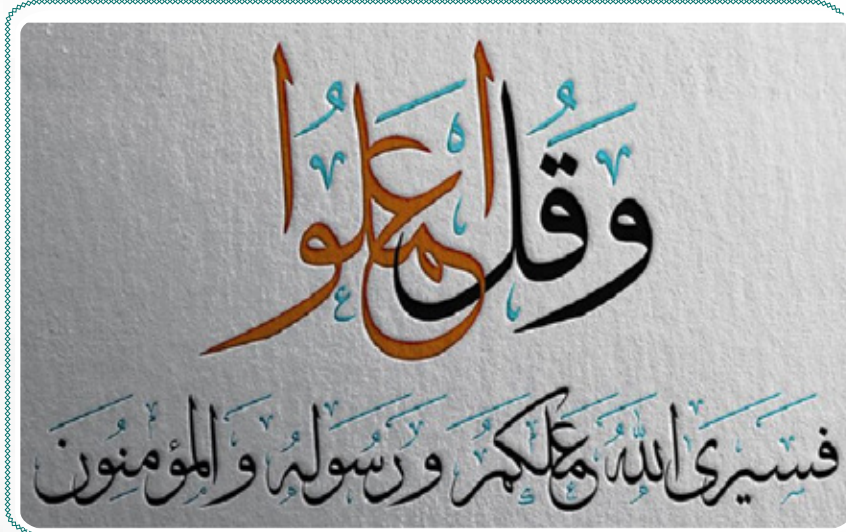 وَقُلِ اعْمَلُوا
فَسَيَرَى اللّٰهُ عَمَلَكُمْ وَرَسُولُهُ وَالْمُؤْمِنُونَ